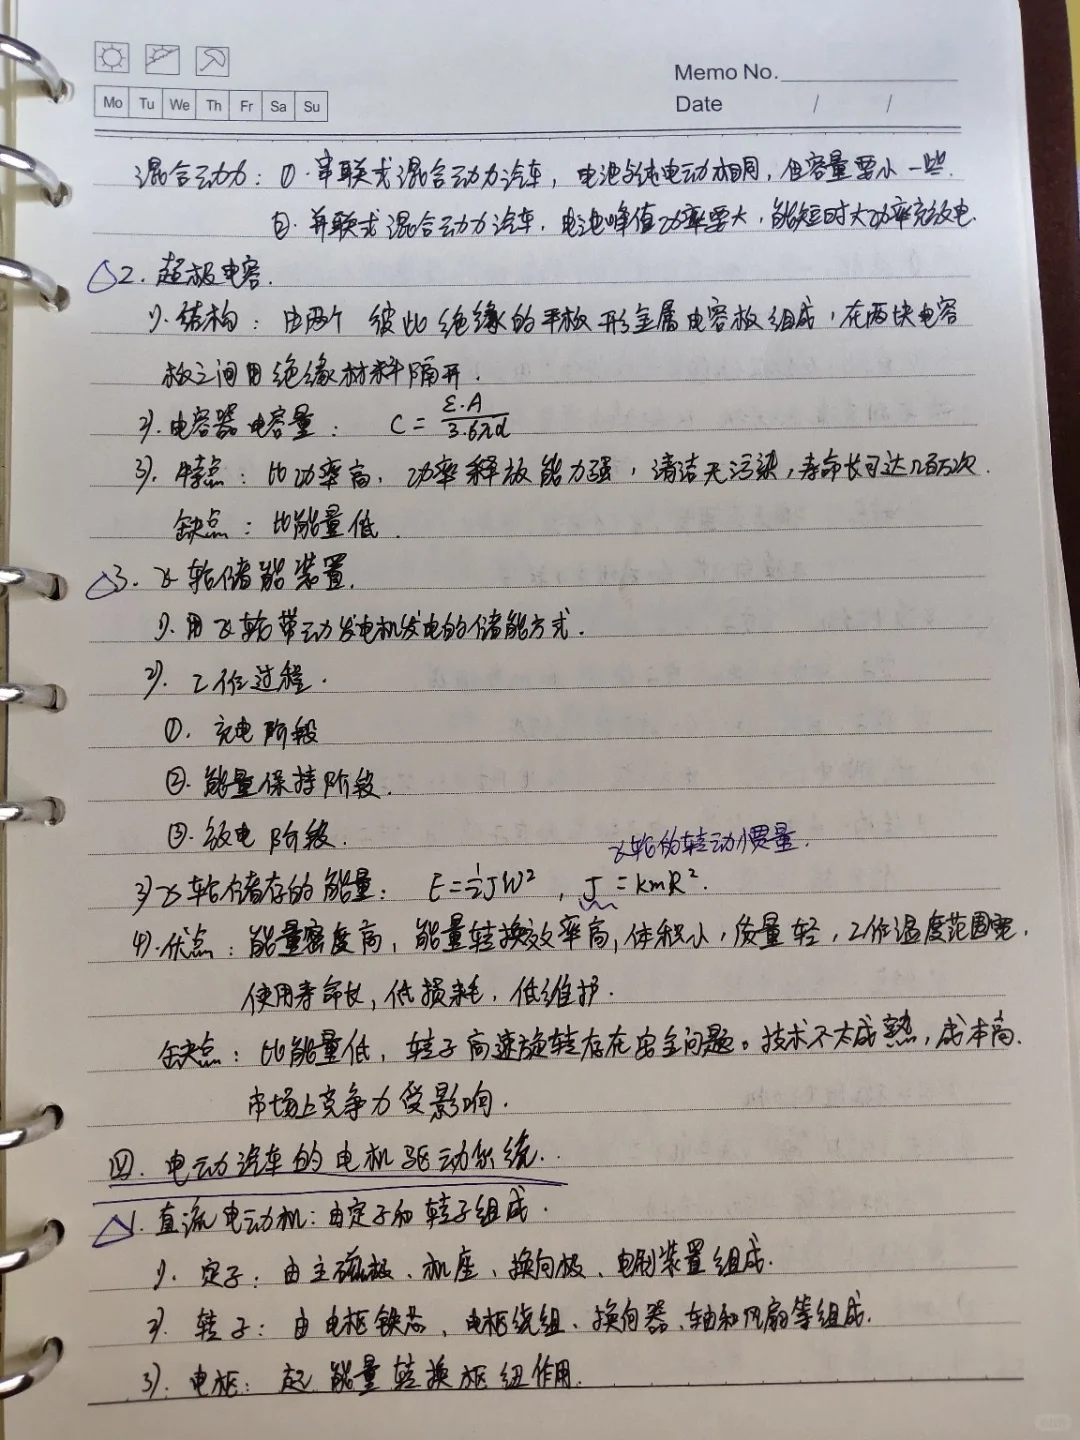 Memo No.
Mo Tu We Th Fr Sa Su
Date / /
混合动力：①.串联式混合动力汽车，电池与纯电动相同，但容量要小一些.
②.并联式混合动力汽车，电池峰值功率要大，能短时大功率充放电.
△2.超极电容.
1).结构：由两个彼此绝缘的平板形金属电容板组成，在两块电容
板之间用绝缘材料隔开.
2).电容器电容量： C=ε·A/3.6πd
3).特点：比功率高，功率释放能力强，清洁无污染，寿命长可达几百万次.
缺点：比能量低.
△3.飞轮储能装置.
1).用飞轮带动发电机发电的储能方式.
2).工作过程.
①.充电阶段
②.能量保持阶段.
③.放电阶段.
飞轮的转动惯量.
3)飞轮储存的能量： E=½JW²，J=kmR².
4).优点：能量密度高，能量转换效率高，体积小，质量轻，工作温度范围宽.
使用寿命长，低损耗，低维护.
缺点：比能量低，转子高速旋转存在安全问题。技术不太成熟，成本高.
市场上竞争力受影响.
四.电动汽车的电机驱动系统..
△1.直流电动机：由定子和转子组成.
1).定子：由主磁极、机座、换向极、电刷装置组成.
2).转子：由电枢铁芯、电枢绕组、换向器、轴和风扇等组成.
3).电枢：起能量转换枢纽作用.